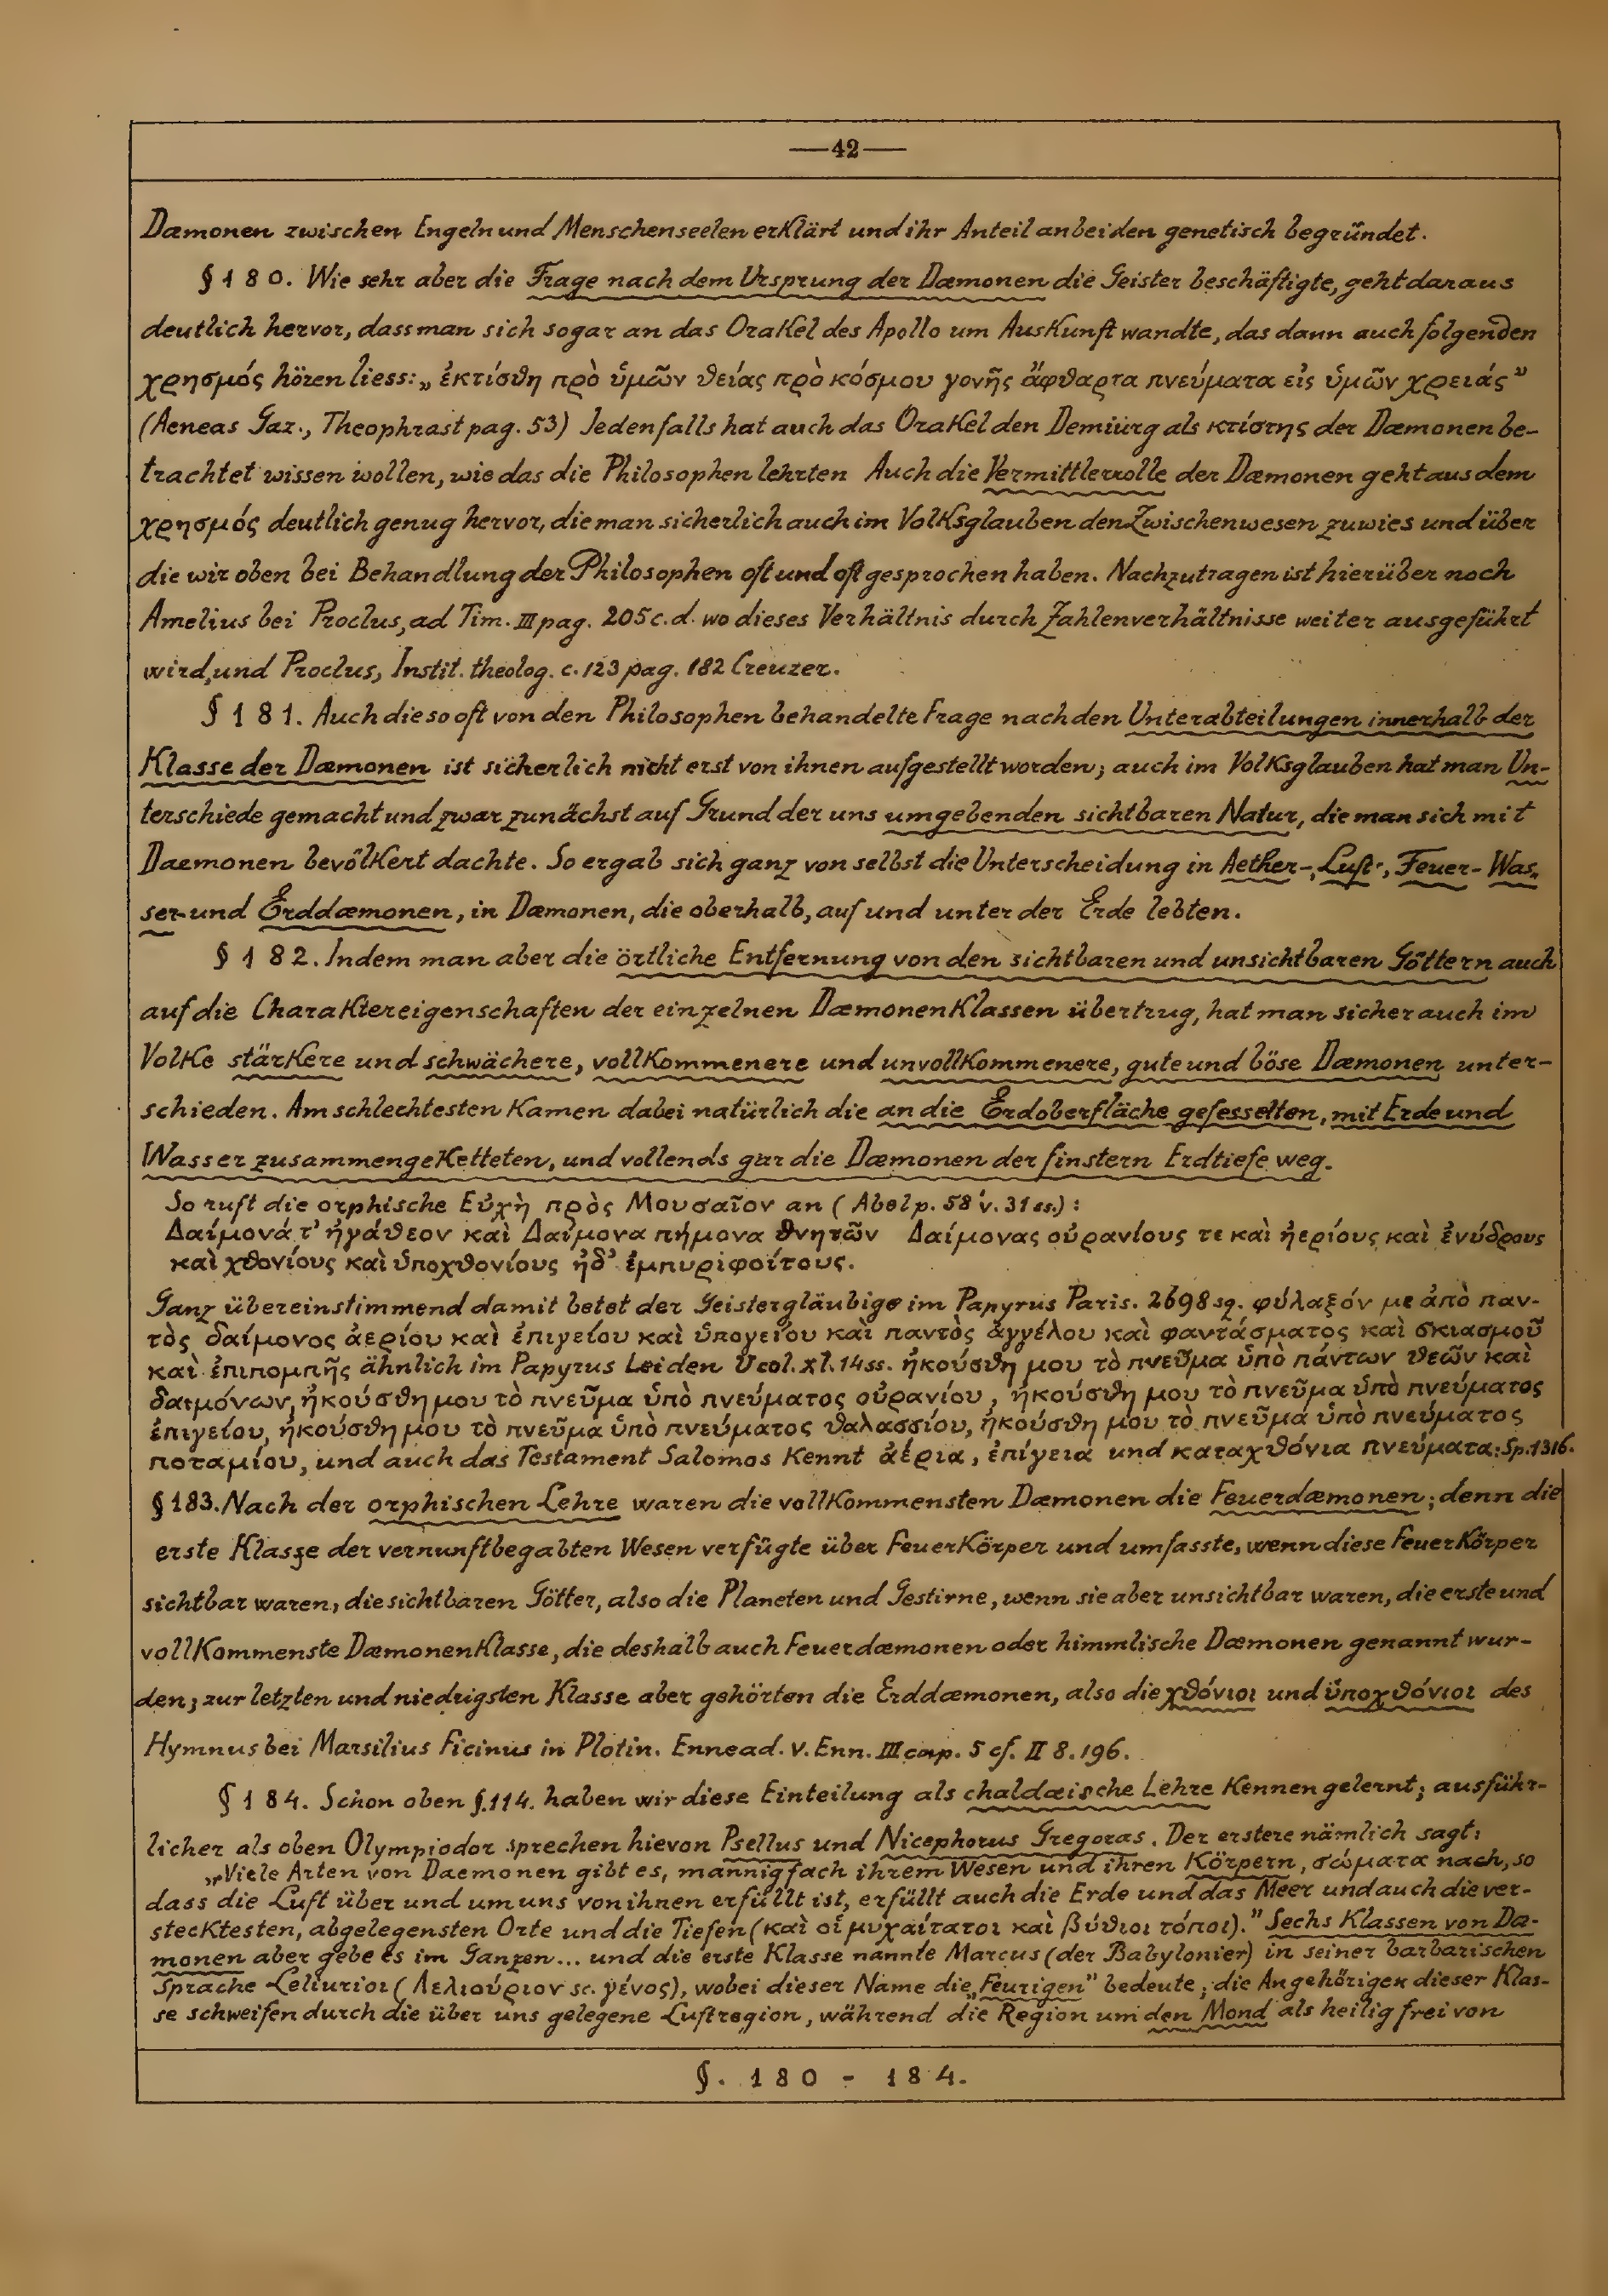 —42—
Dæmonen zwischen Engeln und Menschenseelen erklärt und ihr Anteil an beiden genetisch begründet.
§ 180. Wie sehr aber die Frage nach dem Ursprung der Dæmonen die Geister beschäftigte, geht daraus
deutlich hervor, dass man sich sogar an das Orakel des Apollo um Auskunft wandte, das dann auch folgenden
χρησμός hören liess: „ἐκτίσθη πρὸ ὑμῶν θείας πρὸ κόσμου γονῆς ἄφθαρτα πνεύματα εἰς ὑμῶν χρειάς"
(Aeneas Gaz., Theophrast pag. 53) Jedenfalls hat auch das Orakel den Demiurg als κτίστης der Dæmonen be-
trachtet wissen wollen, wie das die Philosophen lehrten Auch die Vermittlerrolle der Dæmonen geht aus dem
χρησμός deutlich genug hervor, die man sicherlich auch im Volksglauben den Zwischenwesen zuwies und über
die wir oben bei Behandlung der Philosophen oft und oft gesprochen haben. Nachzutragen ist hierüber noch
Amelius bei Proclus, ad Tim. III pag. 205 c. d. wo dieses Verhältnis durch Zahlenverhältnisse weiter ausgeführt
wird, und Proclus, Instit. theolog. c. 123 pag. 182 Creuzer.
§ 181. Auch die so oft von den Philosophen behandelte Frage nach den Unterabteilungen innerhalb der
Klasse der Dæmonen ist sicherlich nicht erst von ihnen aufgestellt worden; auch im Volksglauben hat man Un-
terschiede gemacht und zwar zunächst auf Grund der uns umgebenden sichtbaren Natur, die man sich mit
Daemonen bevölkert dachte. So ergab sich ganz von selbst die Unterscheidung in Aether-, Luft-, Feuer- Was-
ser- und Erddæmonen, in Dæmonen, die oberhalb, auf und unter der Erde lebten.
§ 182. Indem man aber die örtliche Entfernung von den sichtbaren und unsichtbaren Göttern auch
auf die Charaktereigenschaften der einzelnen Dæmonenklassen übertrug, hat man sicher auch im
Volke stärkere und schwächere, vollkommenere und unvollkommenere, gute und böse Dæmonen unter-
schieden. Am schlechtesten kamen dabei natürlich die an die Erdoberfläche gefesselten, mit Erde und
Wasser zusammengeketteten, und vollends gar die Dæmonen der finstern Erdtiefe weg.
So ruft die orphische Εὐχὴ πρὸς Μουσαῖον an (Abel p. 58 v. 31 ss.):
Δαίμονά τ' ἠγάθεον καὶ Δαίμονα πήμονα θνητῶν Δαίμονας οὐρανίους τε καὶ ἠερίους καὶ ἐνύδρους
καὶ χθονίους καὶ ὑποχθονίους ἠδ' ἐμπυριφοίτους.
Ganz übereinstimmend damit betet der Geistergläubige im Papyrus Paris. 2698 sq. φύλαξόν με ἀπὸ παν-
τὸς δαίμονος ἀερίου καὶ ἐπιγείου καὶ ὑπογείου καὶ παντὸς ἀγγέλου καὶ φαντάσματος καὶ σκιασμοῦ
καὶ ἐπιπομπῆς ähnlich im Papyrus Leiden V col. XI. 14 ss. ἠκούσθη μου τὸ πνεῦμα ὑπὸ πάντων θεῶν καὶ
δαιμόνων, ἠκούσθη μου τὸ πνεῦμα ὑπὸ πνεύματος οὐρανίου, ἠκούσθη μου τὸ πνεῦμα ὑπὸ πνεύματος
ἐπιγείου, ἠκούσθη μου τὸ πνεῦμα ὑπὸ πνεύματος θαλασσίου, ἠκούσθη μου τὸ πνεῦμα ὑπὸ πνεύματος
ποταμίου, und auch das Testament Salomos kennt ἀέρια, ἐπίγεια und καταχθόνια πνεύματα: Sp. 1316.
§ 183. Nach der orphischen Lehre waren die vollkommensten Dæmonen die Feuerdæmonen; denn die
erste Klasse der vernunftbegabten Wesen verfügte über Feuerkörper und umfasste, wenn diese Feuerkörper
sichtbar waren, die sichtbaren Götter, also die Planeten und Gestirne, wenn sie aber unsichtbar waren, die erste und
vollkommenste Dæmonenklasse, die deshalb auch Feuerdæmonen oder himmlische Dæmonen genannt wur-
den; zur letzten und niedrigsten Klasse aber gehörten die Erddæmonen, also die χθόνιοι und ὑποχθόνιοι des
Hymnus bei Marsilius Ficinus in Plotin. Ennead. V. Enn. III cap. 5 cf. II 8. 196.
§ 184. Schon oben §. 114. haben wir diese Einteilung als chaldæische Lehre kennen gelernt; ausführ-
licher als oben Olympiodor sprechen hievon Psellus und Nicephorus Gregoras. Der erstere nämlich sagt:
„Viele Arten von Daemonen gibt es, mannigfach ihrem Wesen und ihren Körpern, σώματα nach, so
dass die Luft über und um uns von ihnen erfüllt ist, erfüllt auch die Erde und das Meer und auch die ver-
stecktesten, abgelegensten Orte und die Tiefen (καὶ οἱ μυχαίτατοι καὶ βύθιοι τόποι)." Sechs Klassen von Dæ-
monen aber gebe es im Ganzen... und die erste Klasse nannte Marcus (der Babylonier) in seiner barbarischen
Sprache Leliurioι (Λελιούριον sc. γένος), wobei dieser Name die „Feurigen" bedeute; die Angehörigen dieser Klas-
se schweifen durch die über uns gelegene Luftregion, während die Region um den Mond als heilig frei von
§. 180 - 184.